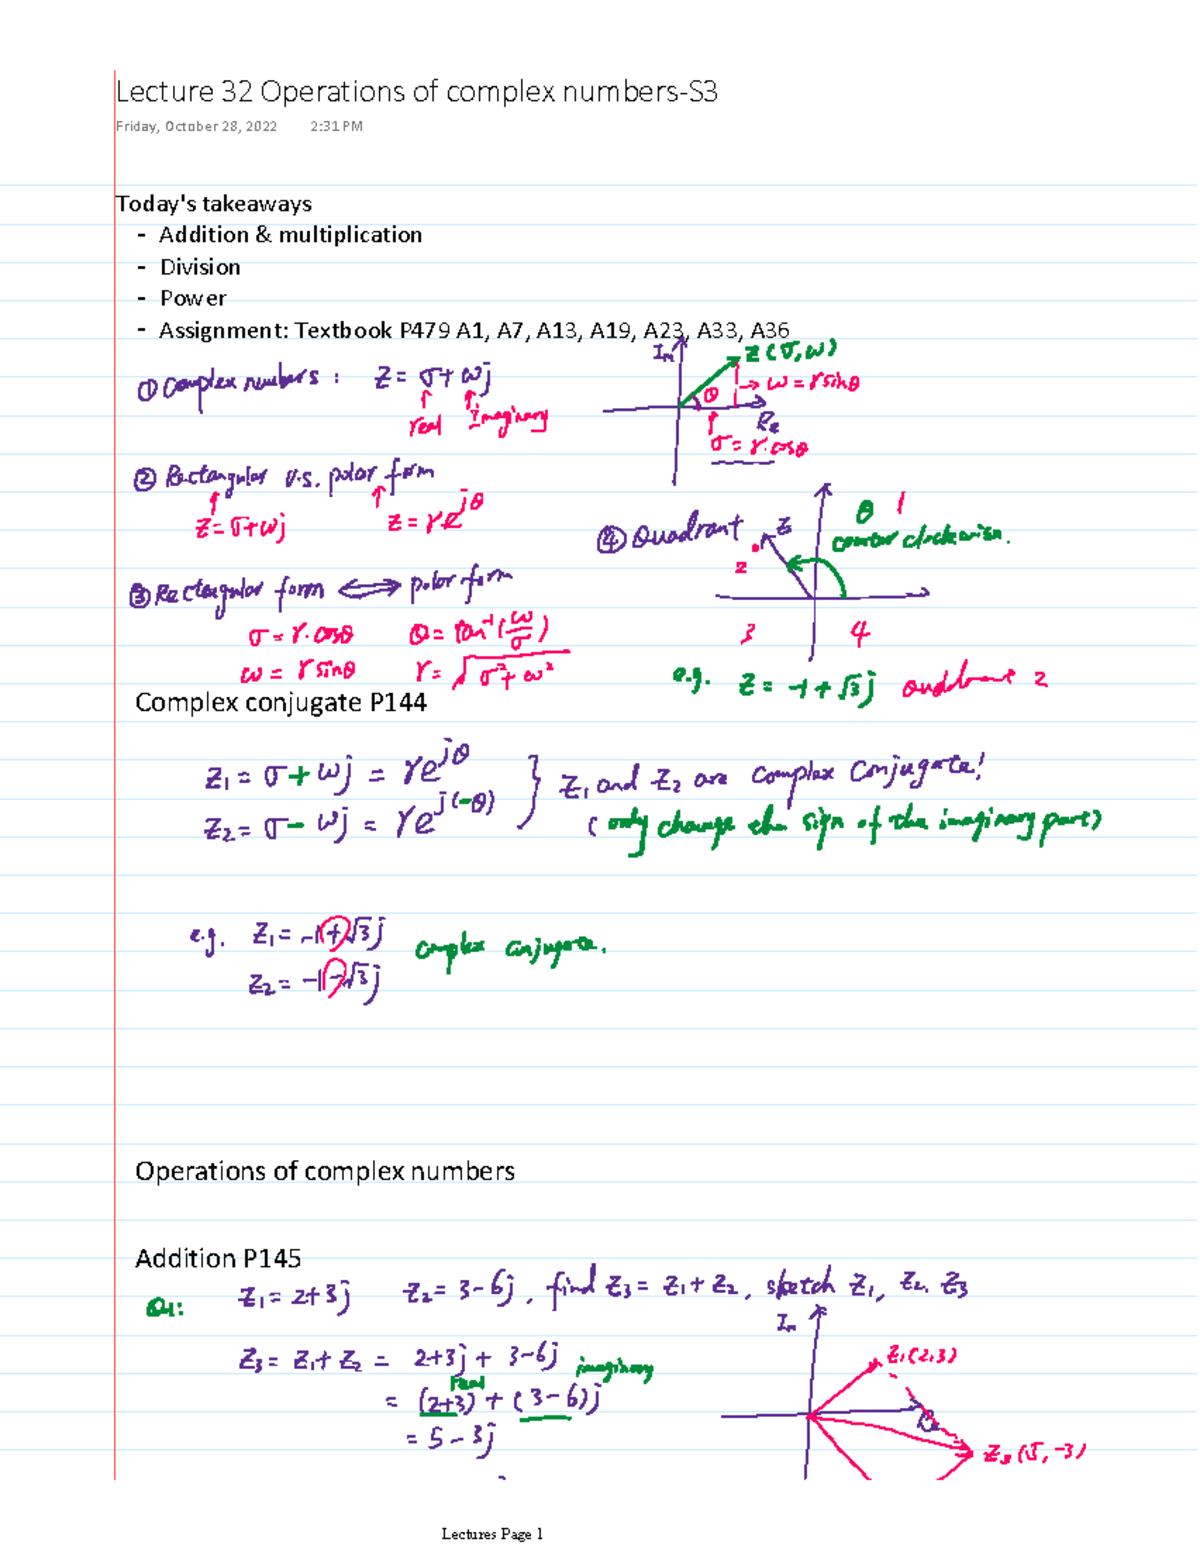 Lecture 32 Operations of complex numbers-S3
Friday, October 28, 2022 2:31 PM
Today's takeaways
- Addition & multiplication
- Division
- Power
- Assignment: Textbook P479 A1, A7, A13, A19, A23, A33, A36
① Complex numbers : z = σ + ωj
real Imaginary
Im z(σ, ω)
θ → ω = r sinθ
Re
σ = r·cosθ
② Rectangular v.s. polar form
z = σ + ωj z = re^{jθ}
④ Quadrant z θ 1
counter clockwise.
2
3 4
e.g. z = -1 + √3 j quadrant 2
③ Rectangular form ⟺ polar form
σ = r·cosθ θ = tan⁻¹(ω/σ)
ω = r sinθ r = √(σ² + ω²)
Complex conjugate P144
z₁ = σ + ωj = re^{jθ} } z₁ and z₂ are complex conjugate!
z₂ = σ - ωj = re^{j(-θ)} (only change the sign of the imaginary part)
e.g. z₁ = -1+√3 j complex conjugate.
z₂ = -1-√3 j
Operations of complex numbers
Addition P145
Q1: z₁ = 2+3j z₂ = 3-6j , find z₃ = z₁ + z₂ , sketch z₁, z₂. z₃
z₃ = z₁ + z₂ = 2+3j + 3-6j
real imaginary
= (2+3) + (3-6)j
= 5 - 3j
Im
z₁(2,3)
Re
z₃(5,-3)
Lectures Page 1